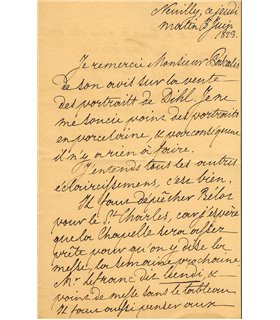 Neuilly, ce jeudi
matin 5 Juin
1823.
Je remercie Monsieur
de son avis sur la vente
des portraits de Dihl. Je ne
me soucie point des portraits
en porcelaine, & par conséquent
il n'y a rien à faire.
J'entends tous les autres
éclaircissement, c'est bien.
Il faut dépêcher
pour le St. Charles, car j'espère
que la Chapelle sera assez
prête pour qu'on y dise la
messe la semaine prochaine
Mr. Lefranc dit Lundi, &
point de messe sans le tableau
Il faut aussi penser aux